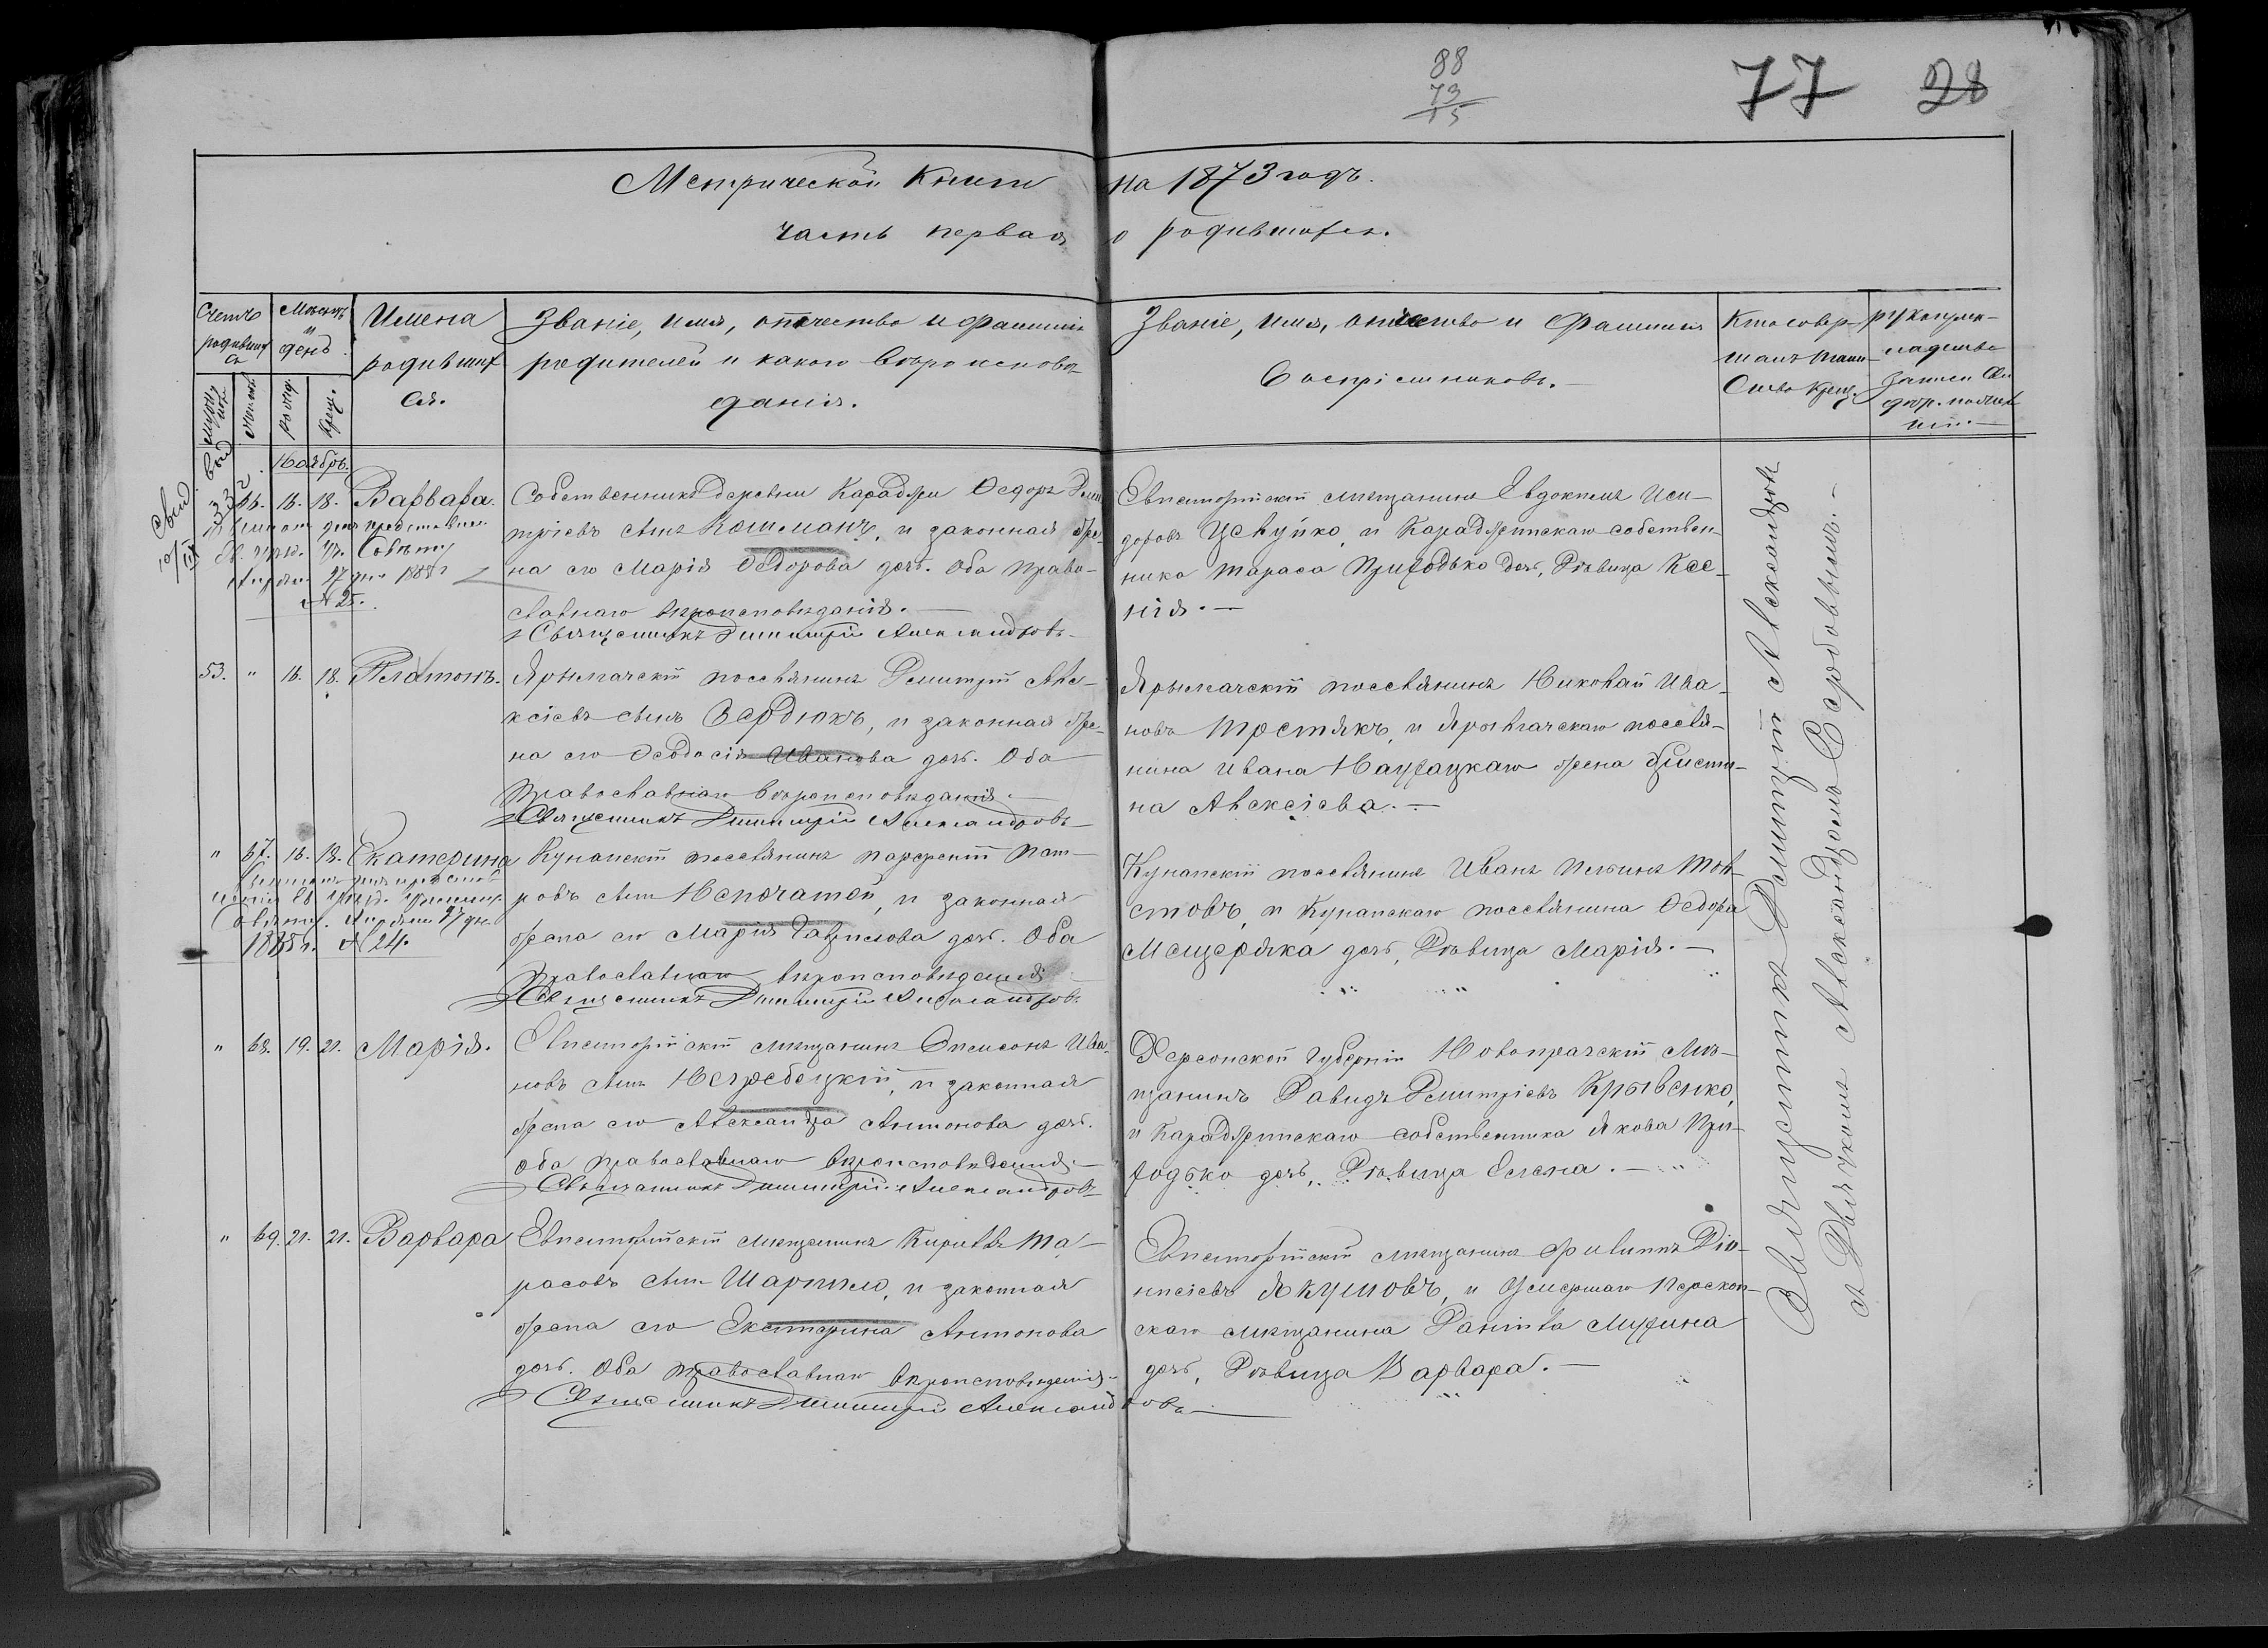 88
73
15
77 28
Метрической Книги на 1873 годъ.
часть первая о родившихся.
Счетъ родивших
ся
Мѣсяцъ
и
день
Имена
родивших
ся.
Званіе, имя, отчество и фамилія
родителей и какого вѣроисповѣ-
данія.
Званіе, имя, отчество и фамилія
Воспріемниковъ.
Кто совер-
шалъ таин-
ство Крещ.
рукоприк-
ладство
записи
Ноябрь.
66. 16. 18. Варвара.
Собственникъ деревни Караджи Ѳедоръ Дми
тріевъ сынъ Кошманъ, и законная же-
на его Марія Ѳедорова дочь. Оба право-
славнаго вѣроисповѣданія.
Священникъ Димитрій Александровъ
Евпаторійскій мѣщанинъ Евдокимъ Иси-
доровъ Цскуйко, и Караджинскаго собствен-
ника Тараса Приходько дочь, Дѣвица Ксе-
нія.
Апрѣля 27 дня
№ 25.
53. " 16. 18. Платонъ.
Ярылгачскій поселянинъ Димитрій Але-
ксіевъ сынъ Сердюкъ, и законная же-
на его Ѳеодосія Иванова дочь. Оба
Православнаго вѣроисповѣданія.
Священникъ Димитрій Александровъ
Ярылгачскій поселянинъ Николай Ива-
новъ Тростякъ, и Ярылгачскаго поселя-
нина Ивана жена Христи-
на Алексіева.
" 67. 16. 18. Екатерина
Кунанскій поселянинъ Пет-
ровъ сынъ Непочатой, и законная
жена его Марія Гаврилова дочь. Оба
Православнаго вѣроисповѣданія
Священникъ Димитрій Александровъ
Кунанскій поселянинъ Иванъ Тол-
стовъ, и Кунанскаго поселянина Ѳедора
Мещеряка дочь, Дѣвица Марія.
Апрѣля 27 дня
1885 г. № 24.
" 68. 19. 21. Марія.
Евпаторійскій мѣщанинъ Ива-
новъ сынъ Негребецкій, и законная
жена его Александра Антонова дочь.
Оба православнаго вѣроисповѣданія.
Священникъ Димитрій Александровъ
Херсонской Губерніи Новопражскій Мѣ-
щанинъ Давидъ Димитріевъ Крывенко,
и Караджинскаго собственника Якова При-
ходько дочь, Дѣвица Елена.
" 69. 21. 21. Варвара
Евпаторійскій мѣщанинъ Кириллъ Та-
расовъ сынъ Шарпило, и законная
жена его Екатерина Антонова
дочь. Оба православнаго вѣроисповѣданія.
Священникъ Димитрій Александровъ
Евпаторійскій мѣщанинъ Филиппъ Діо-
нисіевъ Якумовъ, и Умершаго Перекоп-
скаго мѣщанина Даніила Мухина
дочь, Дѣвица Варвара.
Священникъ Димитрій Александровъ
съ Дьячкомъ Александромъ Сербовымъ.